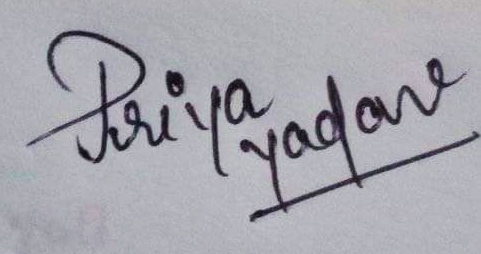 Priya
yadav